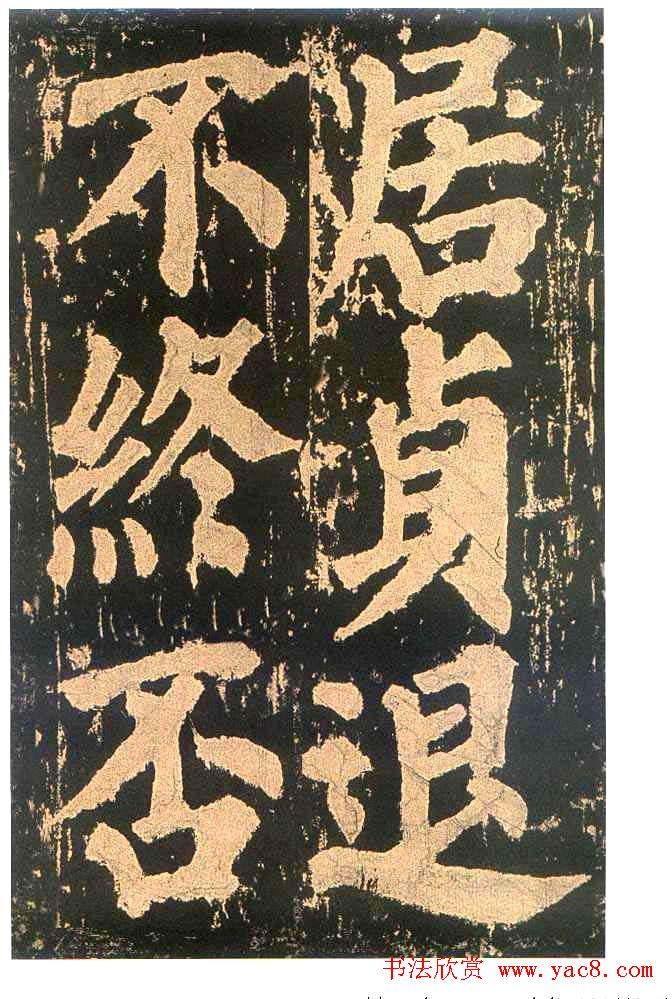 居貞退
不終否
书法欣赏 www.yac8.com